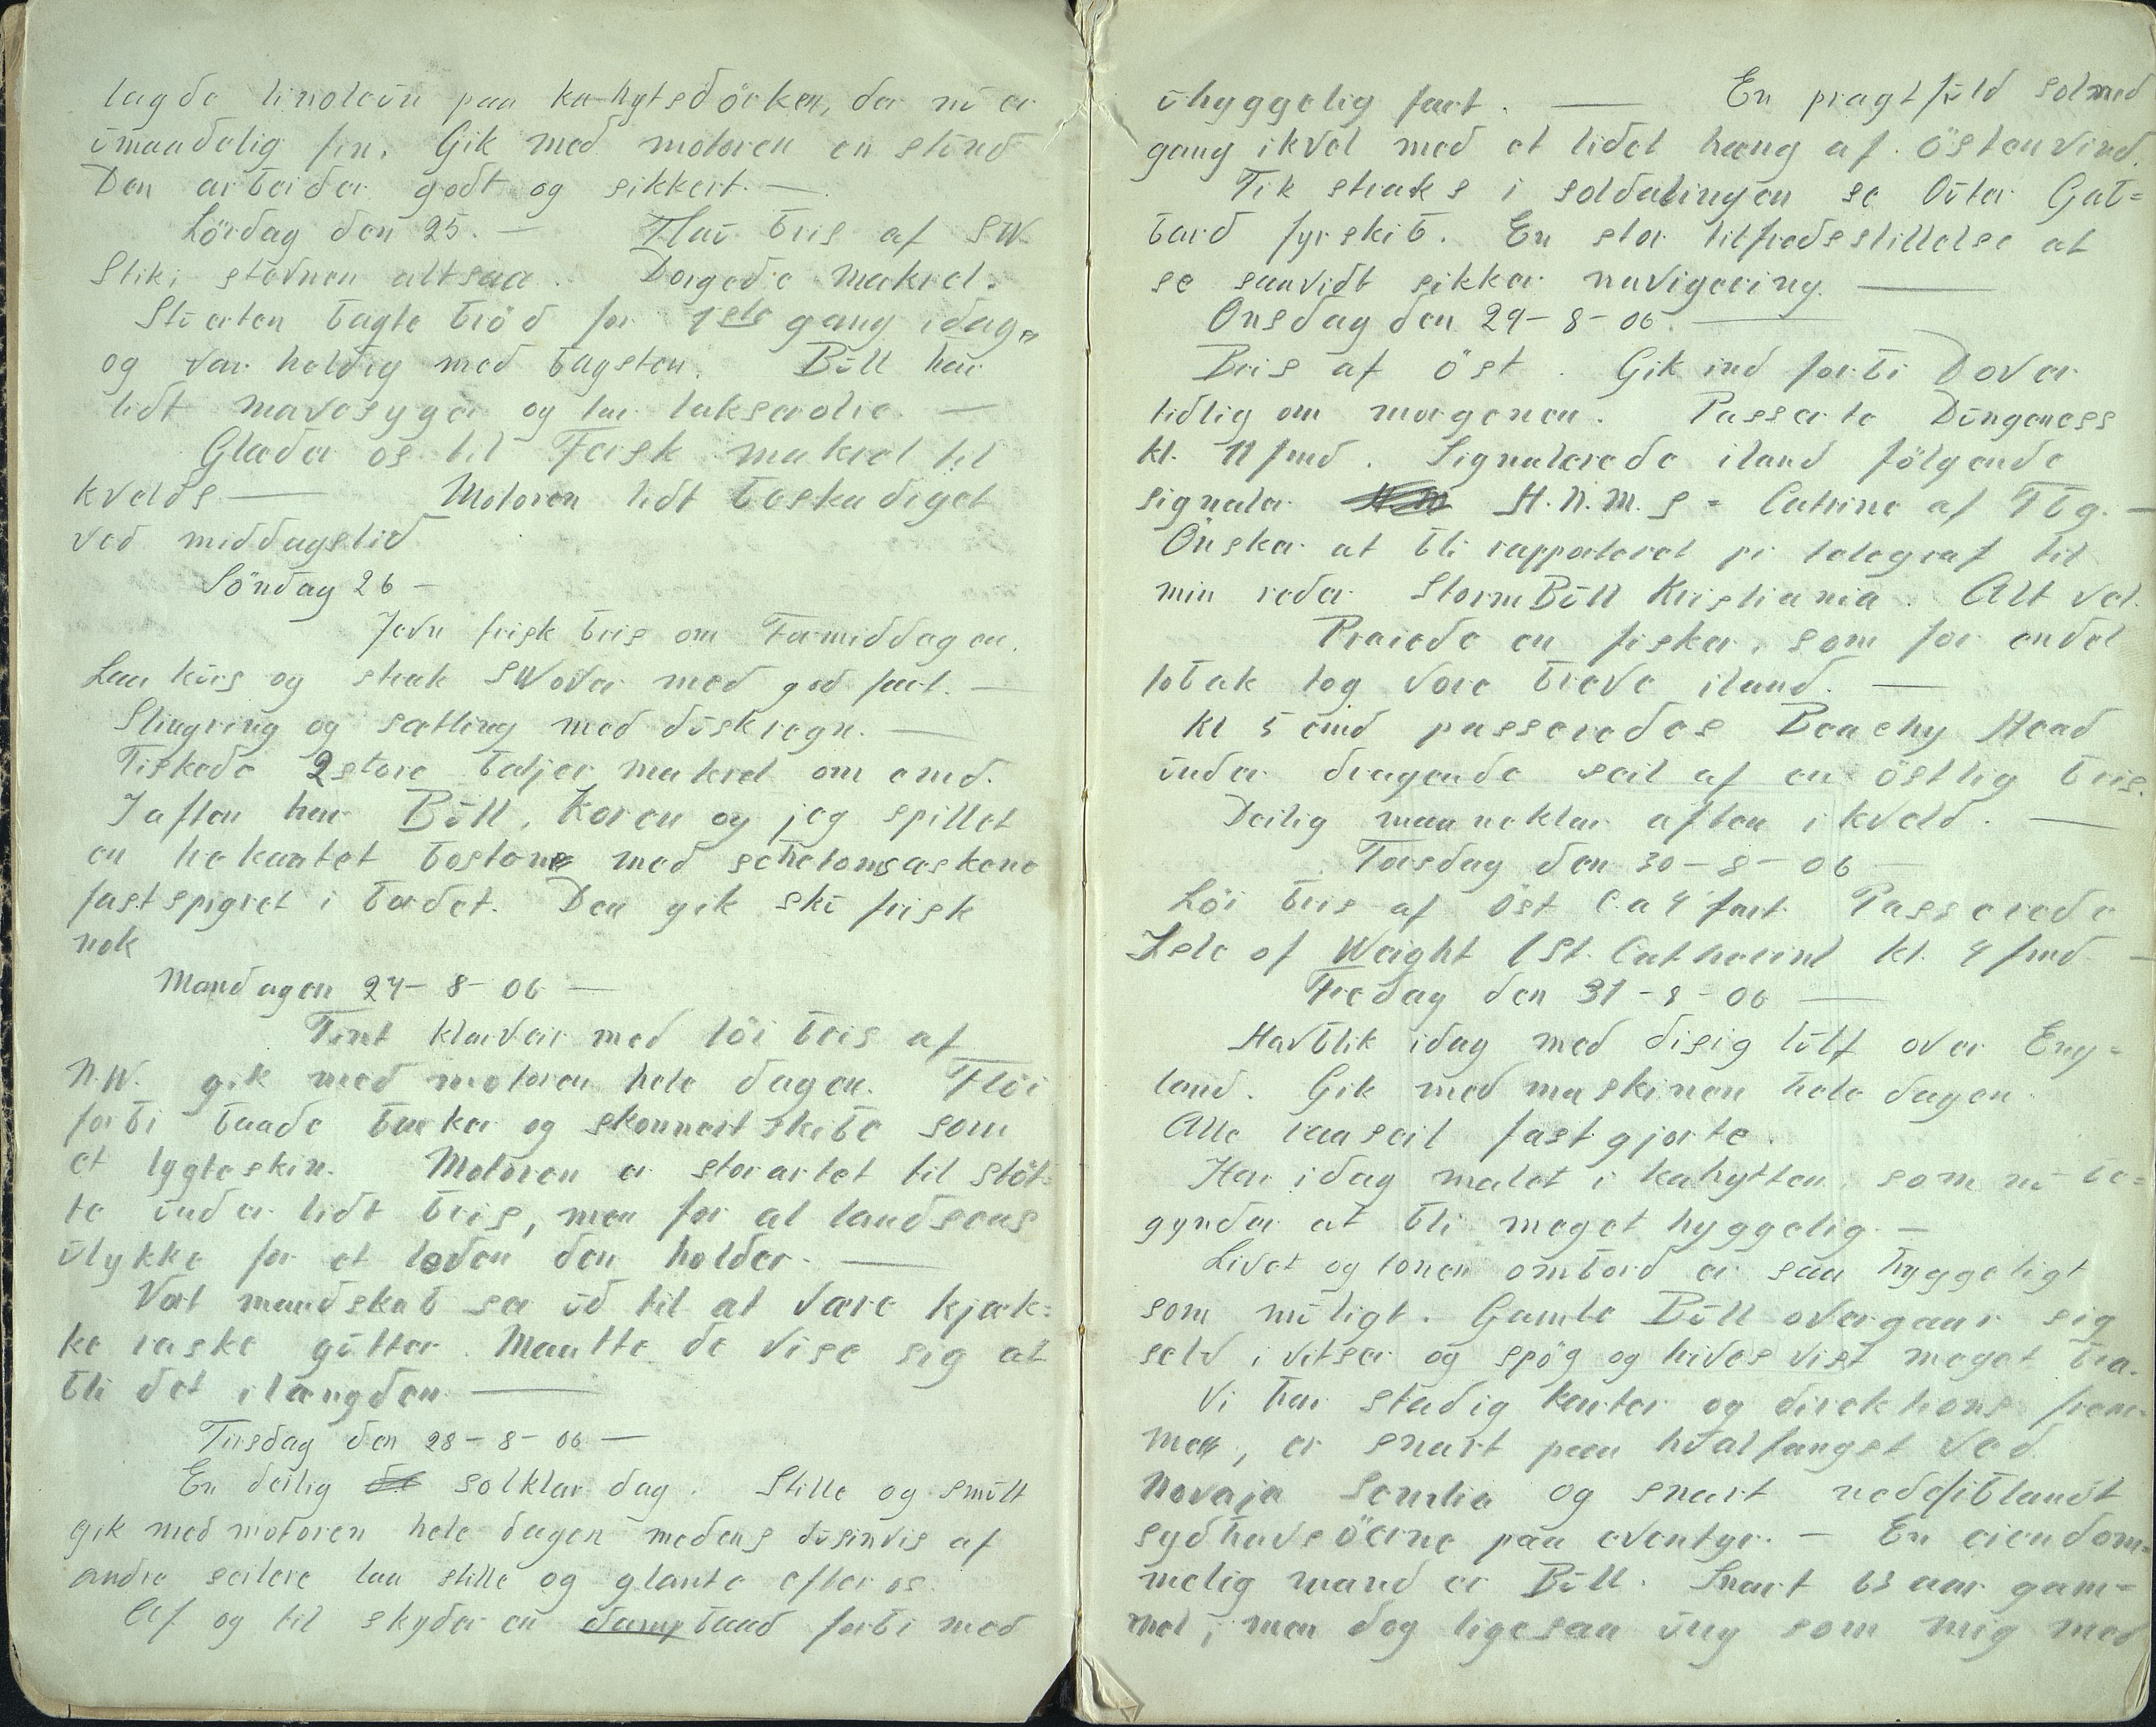 lagde linoleum paa kahytsdörken, der nu er
umaadelig fin. Gik med motoren en stund
Den arbeider godt og sikkert. —
Lördag den 25. — Flau bris af SW.
Stik i stevnen altsaa. Dorgede makrel.
Stuerten bagte bröd for 1ste gang idag,
og var heldig med bagsten. Büll har
lidt mavesyge og tar lakserolie. —
Glæder os til Fersk makrel til
kvelds — Motoren lidt beskadiget
ved middagstid
Söndag 26 —
Jevn frisk bris om Formiddagen.
Laa kurs og strak SWover med god fart. —
Slingring og sætting med duskregn. —
Fiskede 2 store baljer makrel om emd.
I aften har Büll, Koren og jeg spillet
en hekaatet bostone med schetongæskene
fastspigret i bordet. Den gik sku frisk
nok
Mandagen 27-8-06 —
Fint klarveir med löi bris af
N.W. gik med motoren hele dagen. Flöi
forbi baade barker og skonnertskibe som
et lygteskin. Motoren er storartet til stöt-
te under lidt bris, men for at landsens
ulykke for et leven den holder. —
Vort mandskab ser ud til at være kjæk=
ke raske gutter. Maatte de vise sig at
bli det ilængden —
Tirsdag den 28-8-06 —
En deilig solklar dag. Stille og smult
gik med motoren hele dagen medens dusinvis af
andre seilere laa stille og glante efter os.
Af og til skyder en dampbaad forbi med
uhyggelig fart. — En pragtfuld solned
gang ikvel med et lidet hæng af östenvind.
Fik straks i soldalingen se Outer Gab=
bard fyrskib. En stor tilfredsstillelse at
se saavidt sikker navigering. —
Onsdag den 29-8-06. —
Bris af öst. Gik ind forbi Dover
tidlig om morgenen. Passerte Dungeness
kl. 11 fmd. Signalerede iland fölgende
signaler H.N.M.S = Catrine af Tbg. —
Önsker at bli rapporteret pr telegraf til
min reder Storm Büll Kristiania. Alt vel.
Praiede en fisker, som for endel
tobak tog vore breve iland. —
Kl 5 emd passeredes Beachy Head
under dragende seil af en östlig bris.
Deilig maaneklar aften i kveld. —
Torsdag den 30-8-06 —
Löi bris af öst C.a 4' fart Passerede
Isle of Weight (St. Catherine) kl. 4 fmd —
Fredag den 31-8-06 —
Havblik idag med disig luft over Eng=
land. Gik med maskinen hele dagen.
Alle raaseil fastgjorte.
Har idag malet i kahytten, som nu be=
gynder at bli meget hyggelig —
Livet og tonen ombord er saa hyggeligt
som muligt. Gamle Büll overgaar sig
selv i vitser og spög og trives vist meget bra.
Vi har stadig karter og direktions frem-
me, er snart paa hvalfangst ved
Novaja Semlia og snart nede iblandt
sydhavsöerne paa eventyr. — En eiendom=
melig mand er Büll. Snart 63 aar gam=
mel, men dog ligesaa ung som mig med